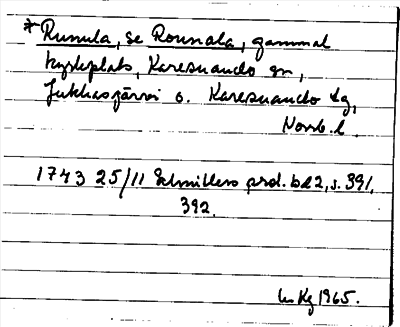 * Runula, se Rounala, gammal
kyrkplats, Karesuando sn,
Jukkasjärvi o. Karesuando tg,
Norrb. l.
1743 25/11 Ehrnillers prd. bd 2, s. 391,
392.
Kg 1965.